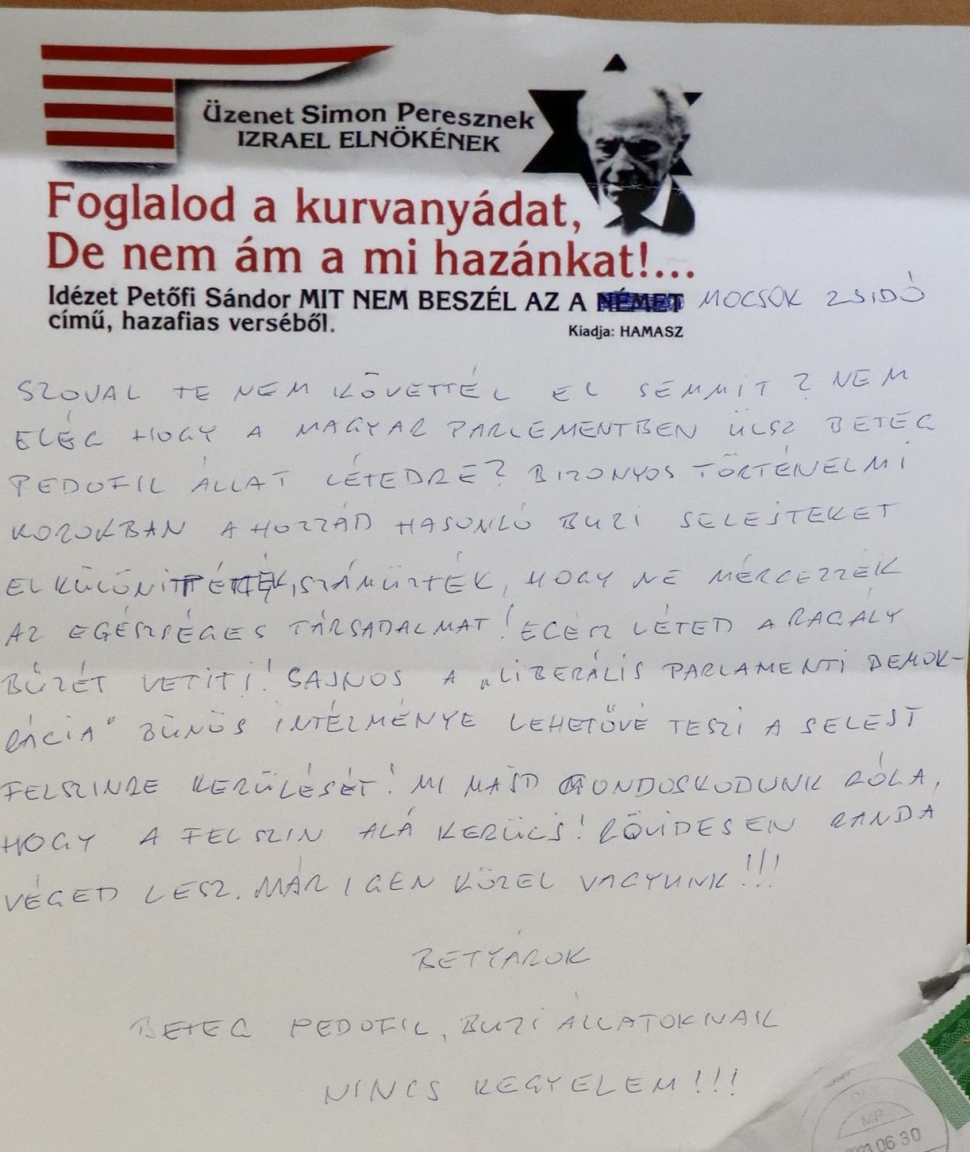 Üzenet Simon Peresznek
IZRAEL ELNÖKÉNEK
Foglalod a kurvanyádat,
De nem ám a mi hazánkat!...
Idézet Petőfi Sándor MIT NEM BESZÉL AZ A NÉMET MOCSOK ZSIDÓ
című, hazafias verséből.
Kiadja: HAMASZ
SZOVAL TE NEM KÖVETTÉL EL SEMMIT? NEM
ELÉG HOGY A MAGYAR PARLEMENTBEN ÜLSZ BETEG
PEDOFIL ÁLLAT LÉTEDRE? BIZONYOS TÖRTÉNELMI
KOROKBAN A HOZZÁD HASONLÓ BUZI SELEJTEKET
ELKÜLÖNITTETTÉK, SZÁMŰZTÉK, HOGY NE MÉRGEZZÉK
AZ EGÉSZSÉGES TÁRSADALMAT! EGÉSZ LÉTED A RAGÁLY
BŰZÉT VETITI! SAJNOS A „LIBERÁLIS PARLAMENTI DEMOK-
RÁCIA" BŰNÖS INTÉZMÉNYE LEHETŐVÉ TESZI A SELEJT
FELSZINRE KERÜLÉSÉT! MI MAJD GONDOSKODUNK RÓLA,
HOGY A FELSZIN ALÁ KERÜLJ! RÖVIDESEN RANDA
VÉGED LESZ. MÁR IGEN KÖZEL VAGYUNK!!!
BETYÁROK
BETEG PEDOFIL, BUZI ÁLLATOKNAK
NINCS KEGYELEM!!!
MP
06 30